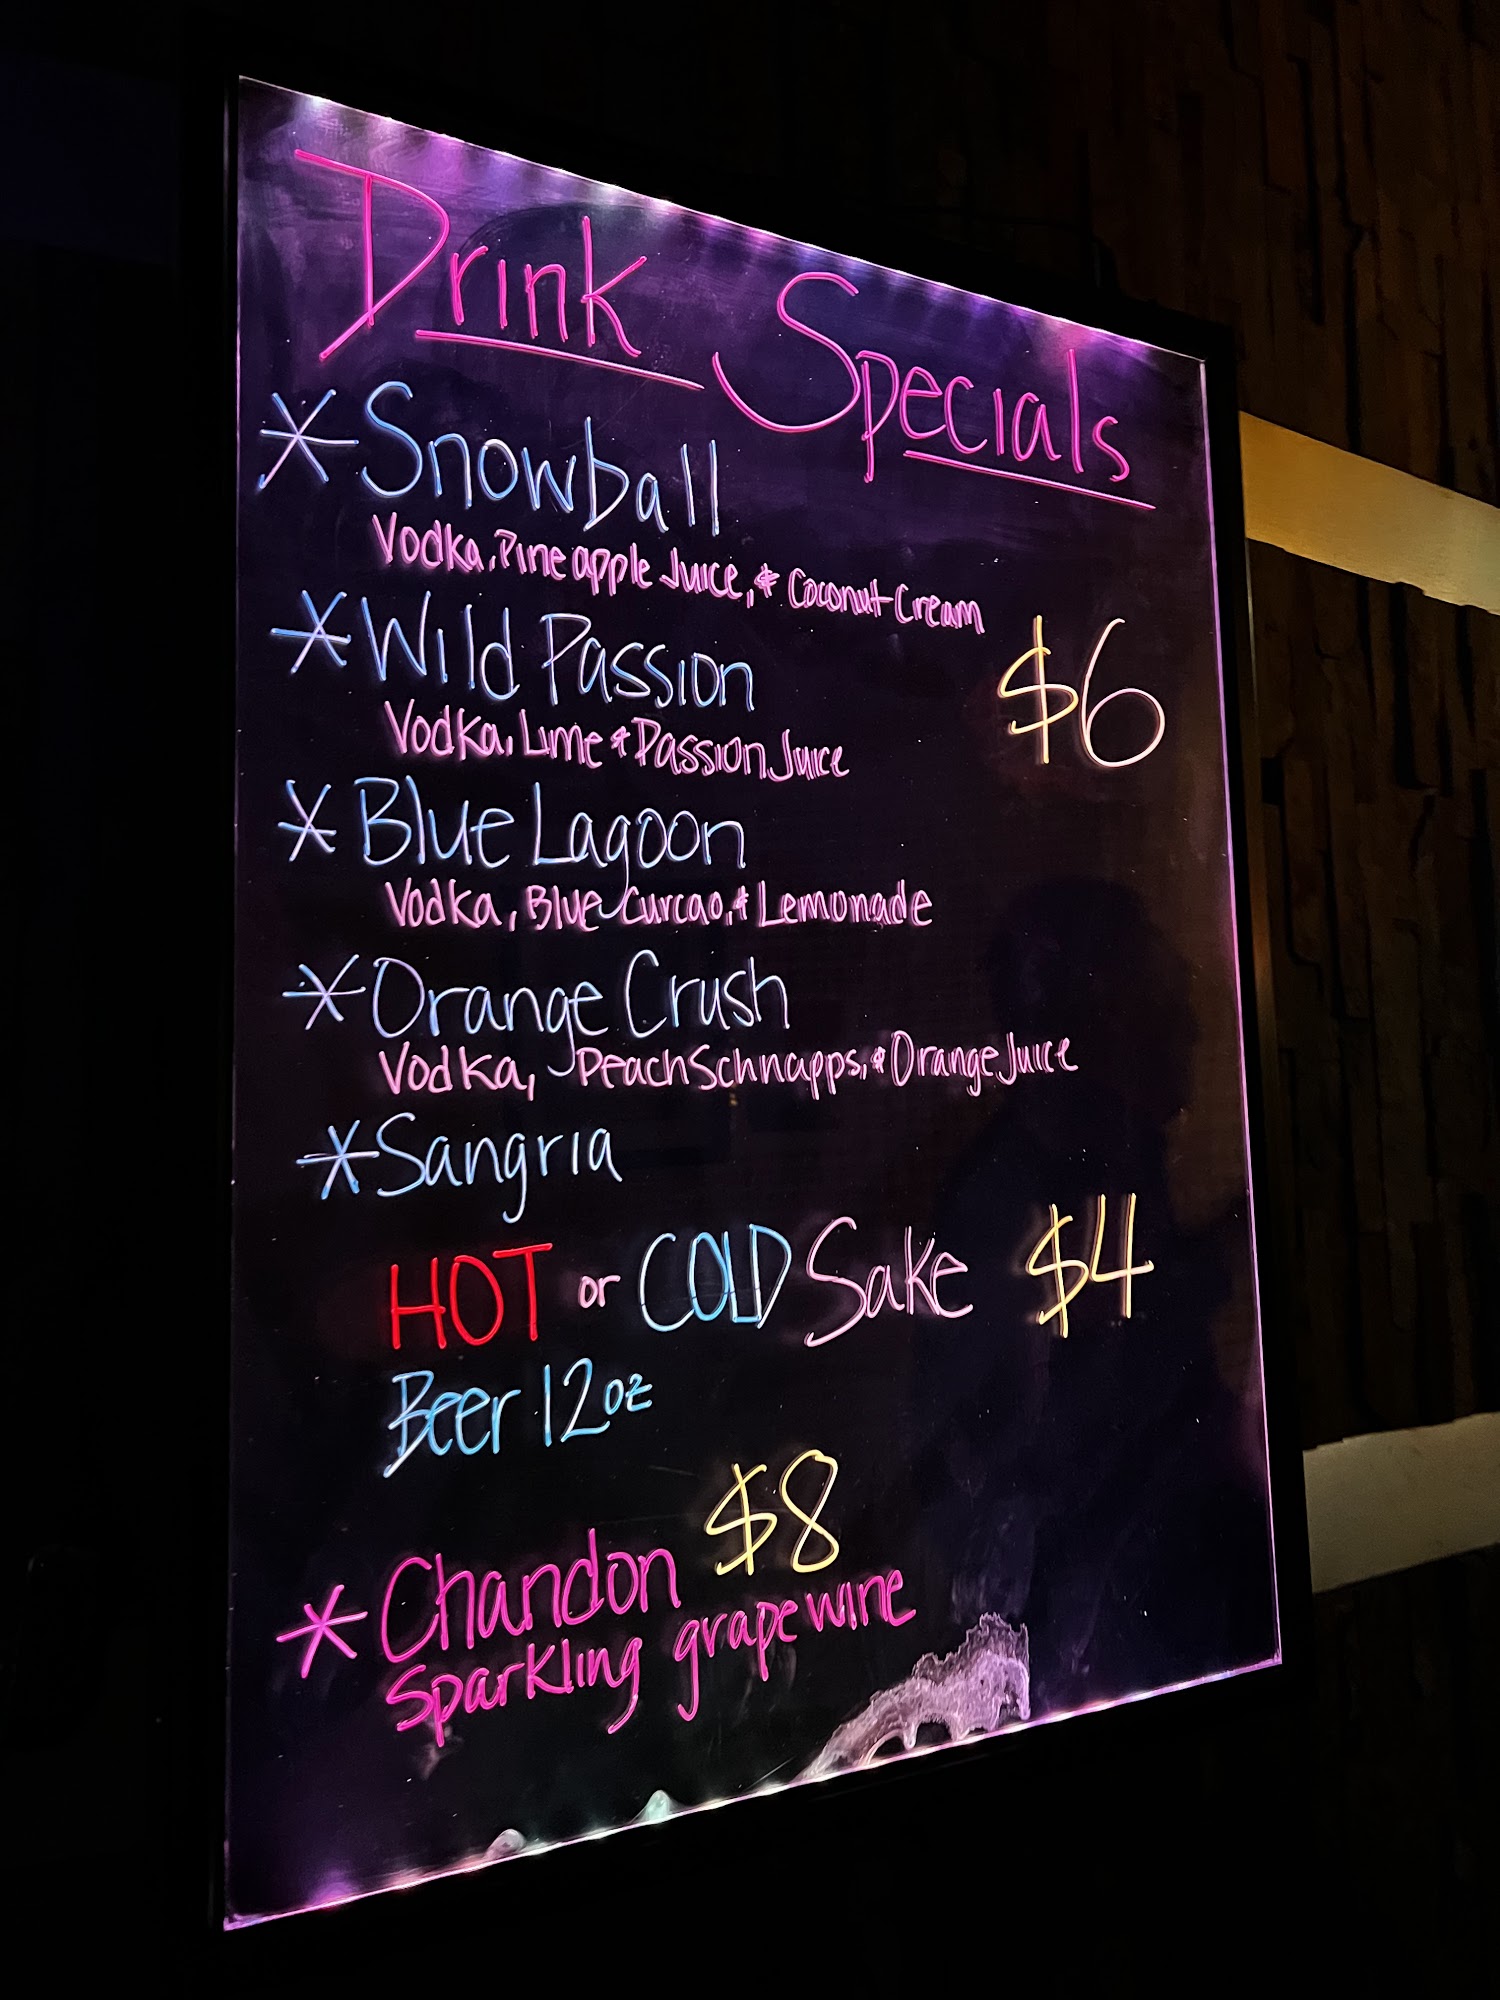 Drink Specials
* Snowball
Vodka, Pineapple Juice, & Coconut Cream
* Wild Passion
$6
Vodka, Lime & Passion Juice
* Blue Lagoon
Vodka, Blue Curcao, & Lemonade
* Orange Crush
Vodka, Peach Schnapps, & Orange Juice
* Sangria
HOT or COLD Sake $4
Beer 12oz
* Chandon $8
Sparkling grape wine